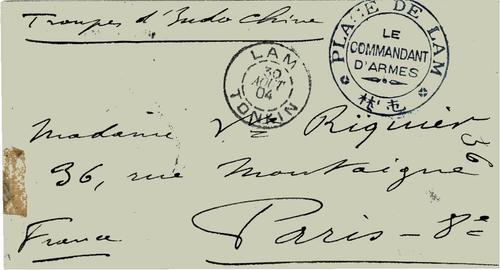 Troupes d'Indo Chine
LAM
30
AOUT
04
TONKIN
PLACE DE LAM
LE
COMMANDANT
D'ARMES
Madame Vve Riquier
36
36, rue Montaigne
France
Paris - 8e